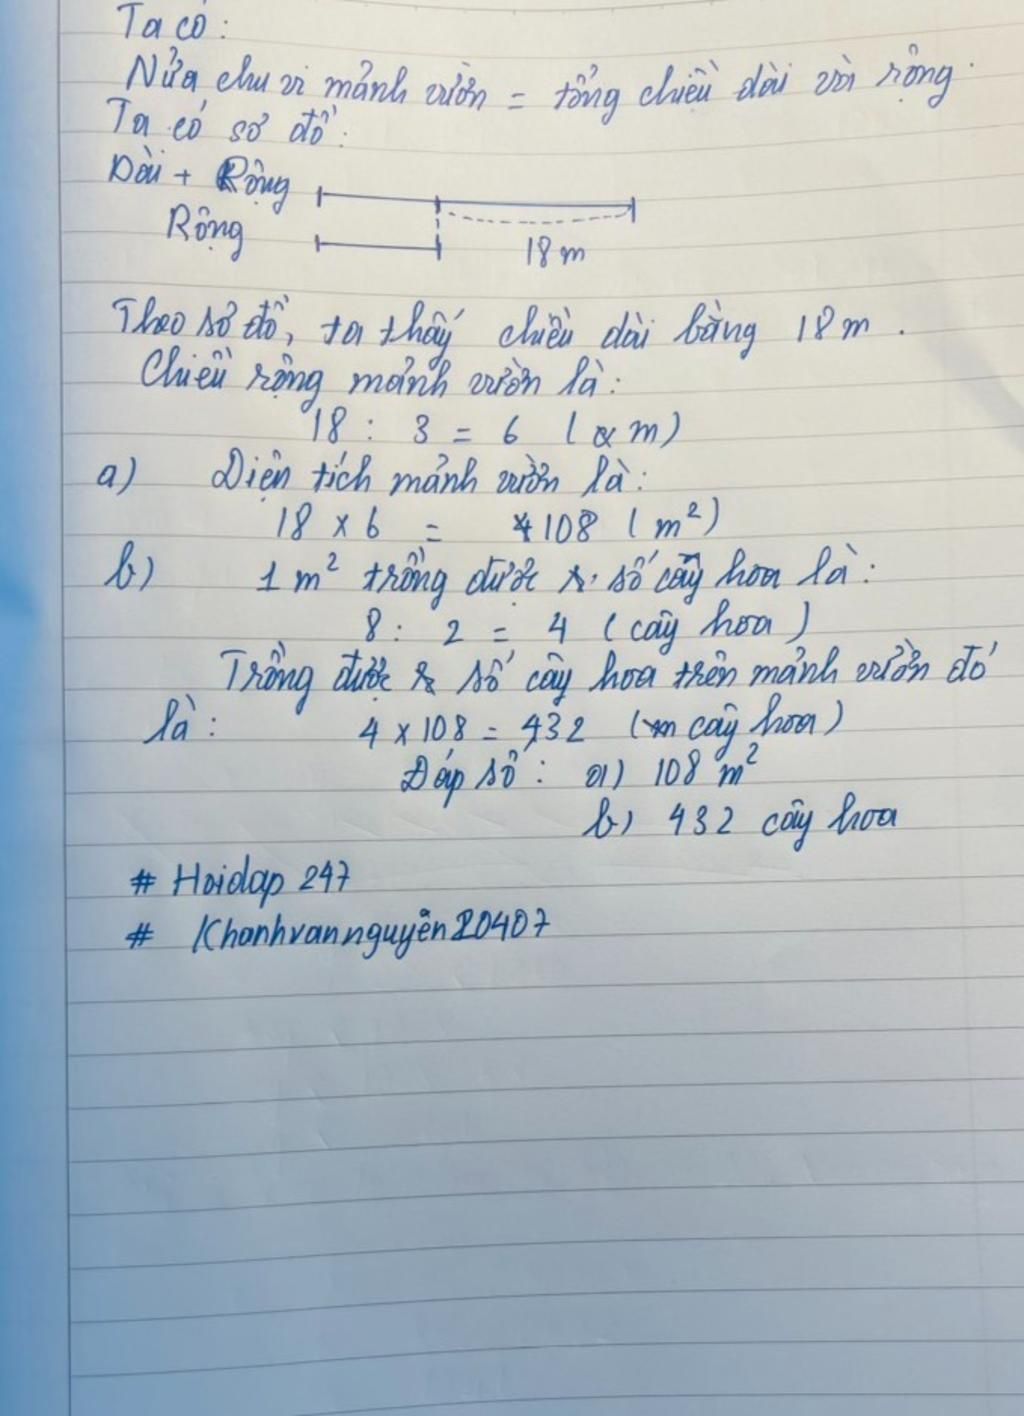 Ta có:
Nửa chu vi mảnh vườn = tổng chiều dài với rộng.
Ta có sơ đồ:
Dài + Rộng
Rộng
18 m
Theo sơ đồ, ta thấy chiều dài bằng 18 m.
Chiều rộng mảnh vườn là:
18 : 3 = 6 (m)
a) Diện tích mảnh vườn là:
18 x 6 = 108 (m²)
b) 1 m² trồng được số cây hoa là:
8 : 2 = 4 (cây hoa)
Trồng được số cây hoa trên mảnh vườn đó
là: 4 x 108 = 432 (cây hoa)
Đáp số: a) 108 m²
b) 432 cây hoa
# Hoidap 247
# Khanhvannguyên20407